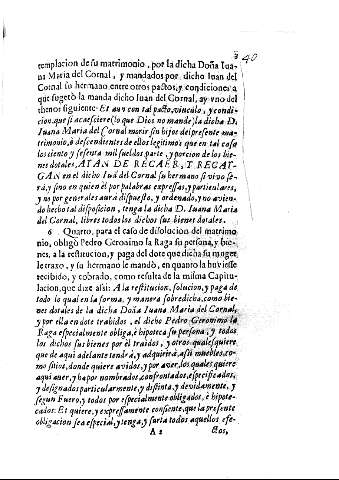 3 40
templacion de su matrimonio, por la dicha Doña Iua-
na Maria del Cornal, y mandados por dicho Iuan del
Cornal su hermano entre otros pactos, y condiciones a
que sugetò la manda dicho Iuan del Cornal, ay vno del
thenor siguiente. Et aun con tal pacto, vinculo, y condi-
cion, que si acaesciere (lo que Dios no mande) la dicha D.
Iuana Maria del Cornal morir sin hijos del presente ma-
trimonio, ò descendientes de ellos legitimos que en tal caso
los ciento y sesenta mil sueldos parte, y porcion de los bie-
nes dotales, AIAN DE RECAER, Y RECAY-
GAN en el dicho Iuā del Cornal su hermano si vivo se-
rà, y sino en quien èl por palabras expressas, y particulares,
y no por generales aurà dispuesto, y ordenado, y no avien-
do hecho tal disposicion, tenga la dicha D. Iuana Maria
del Cornal, libres todos los dichos sus bienes dotales.
6 Quarto, para el caso de disolucion del matrimo
nio, obligò Pedro Geronimo la Raga su persona, y bie-
nes, a la restitucion, y paga del dote que dicha su muger
le traxo, y su hermano le mandò, en quanto la huviesse
recibido, y cobrado, como resulta de la misma Capitu-
lacion, que dize assi: A la restitucion, solucion, y paga de
todo lo qual en la forma, y manera sobredicha, como bie-
nes dotales de la dicha Doña Iuana Maria del Cornal,
y por ella en dote trahidos, el dicho Pedro Geronimo la
Raga especialmente obliga, è hipoteca su persona, y todos
los dichos sus bienes por èl traidos, y otros qualesquiere
que de aqui adelante tendrà, y adquirirà, assi muebles, co-
mo sitios, donde quiere avidos, y por aver, los quales quiere
aqui aver, y ha por nombrados, confrontados, especificados,
y designados particularmente, y distinta, y devidamente, y
segun Fuero, y todos por especialmente obligados, è hipote-
cados. Et quiere, y expressamente consiente, que la presente
obligacion sea especial, y tenga, y surta todos aquellos efe-
A 2 ctos,